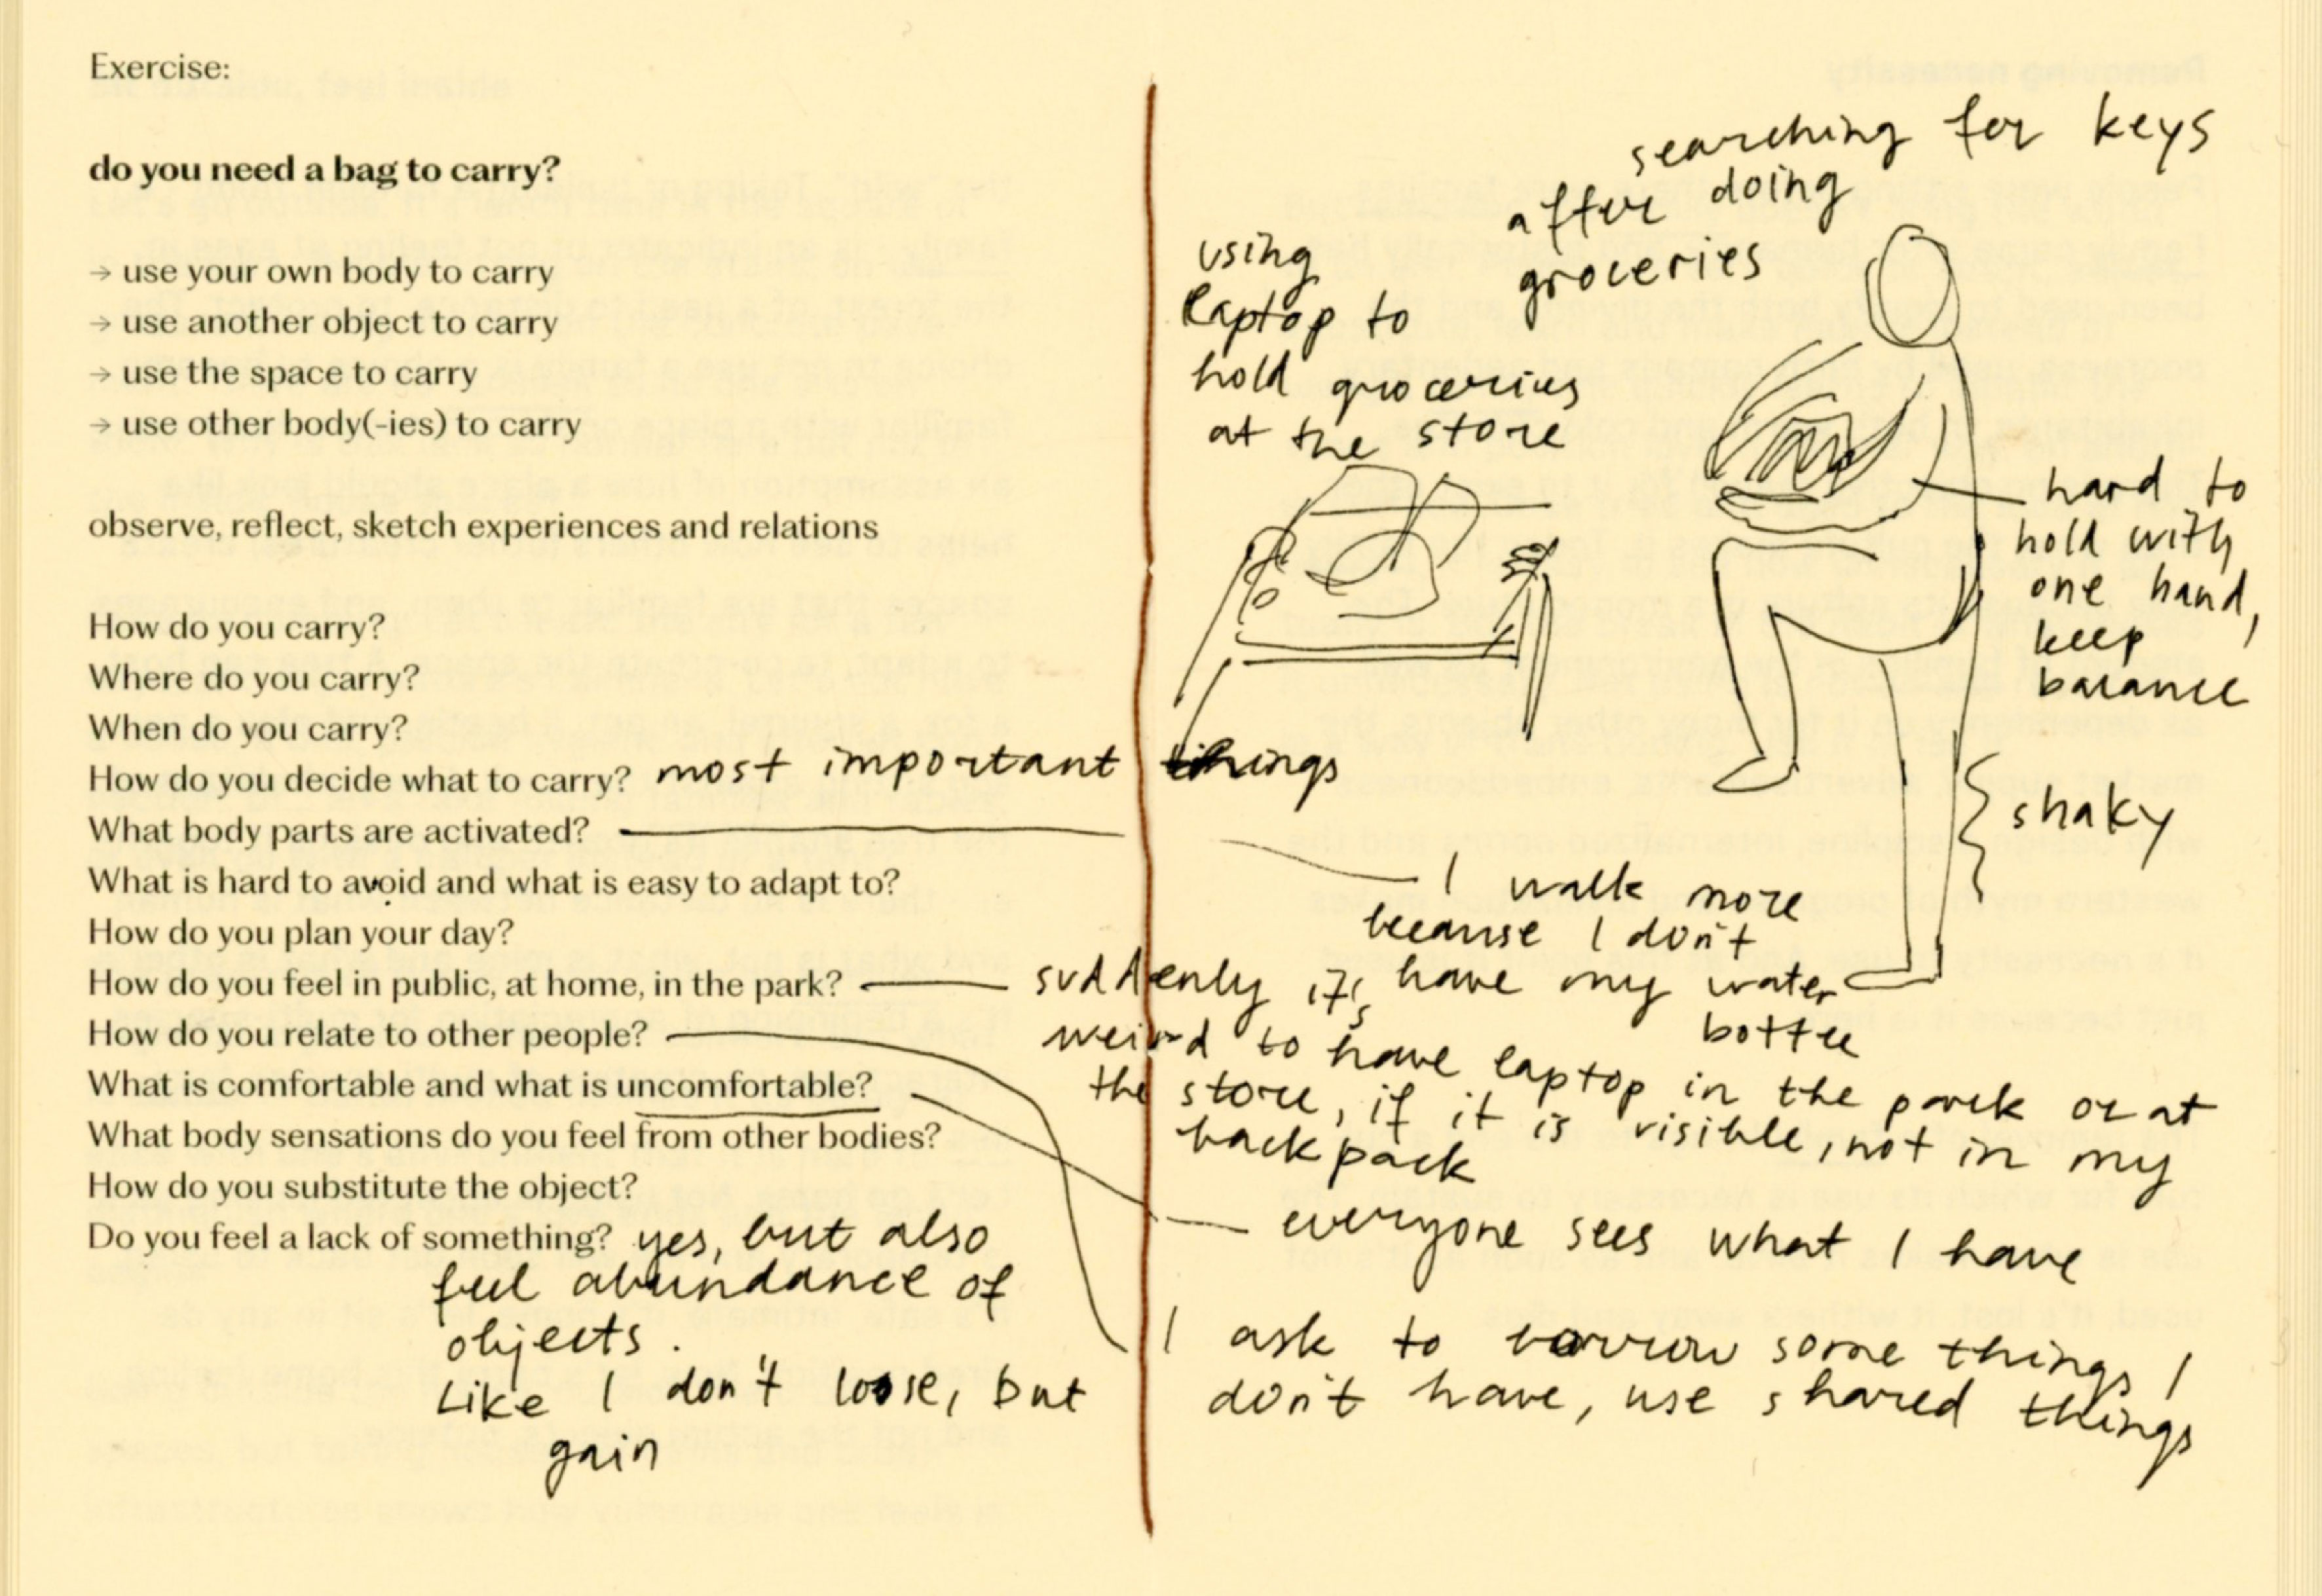 Exercise:
do you need a bag to carry?
→ use your own body to carry
→ use another object to carry
→ use the space to carry
→ use other body(-ies) to carry
observe, reflect, sketch experiences and relations
How do you carry?
Where do you carry?
When do you carry?
How do you decide what to carry? most important things
What body parts are activated?
What is hard to avoid and what is easy to adapt to?
How do you plan your day?
How do you feel in public, at home, in the park?
How do you relate to other people?
What is comfortable and what is uncomfortable?
What body sensations do you feel from other bodies?
How do you substitute the object?
Do you feel a lack of something? yes, but also
feel abundance of
objects.
Like I don't loose, but
gain
searching for keys
after doing
groceries
using
laptop to
hold groceries
at the store
hard to
hold with
one hand,
keep
balance
shaky
I walk more
because I don't
have my water
bottle
suddenly it's
weird to have laptop in the park or at
the store, if it is visible, not in my
backpack
everyone sees what I have
I ask to borrow some things I
don't have, use shared things